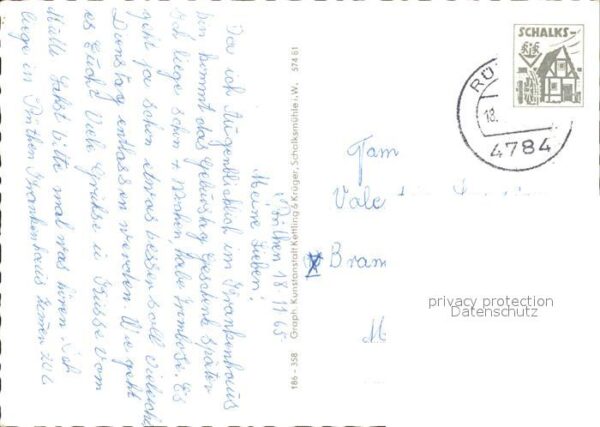 Rüthen 18.11.65
Meine Lieben!
Da ich Augenblicklich im Krankenhaus
bin kommt das Geburtstag Geschenk später
Ich liege schon 4 Wochen, habe Trombose. Es
geht ja schon etwas besser soll vieleicht
Dienstag entlassen werden. Wie geht
es Euch? Viele Grüße u Küsse vom
laßt bitte mal was hören. Ich
liege in Rüthen Krankenhaus
186 - 358 Graph. Kunstanstalt Kettling & Krüger, Schalksmühle i. W. 57461
SCHALKS-
K&K
RÜ
18.
4784
Fam
Vale
Bram
M
privacy protection
Datenschutz